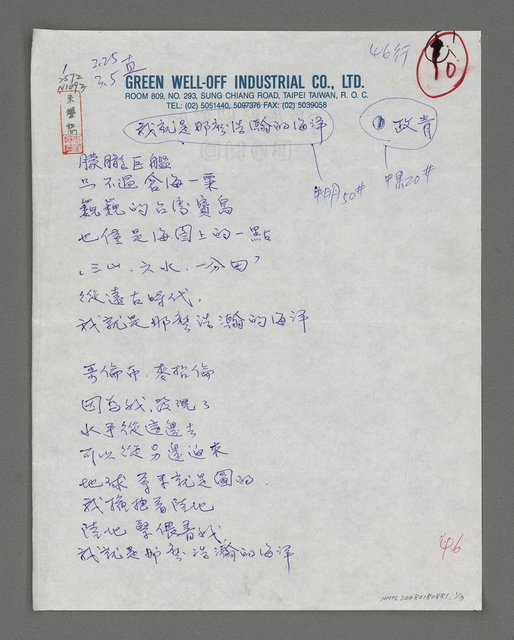 2.25
3.5 直
46行
10
GREEN WELL-OFF INDUSTRIAL CO., LTD.
ROOM 809, NO. 293, SUNG CHIANG ROAD, TAIPEI TAIWAN, R. O. C.
TEL: (02) 5051440, 5097376 FAX: (02) 5039058
我就是那麼浩瀚的海洋
政青
#明50#
#黑20#
朦朧巨艦
只不過倉海一粟
巍巍的台灣寶島
也僅是海圖上的一點
「三山、六水、一分田」
從遠古時代，
我就是那麼浩瀚的海洋
哥倫布、麥哲倫
因為我，發現了
水手從這邊去
可以從另邊迴來
地球原來就是圓的．
我擁抱著陸地
陸地緊偎著我
我就是那麼浩瀚的海洋
46
NMTL20080180881, 1/3